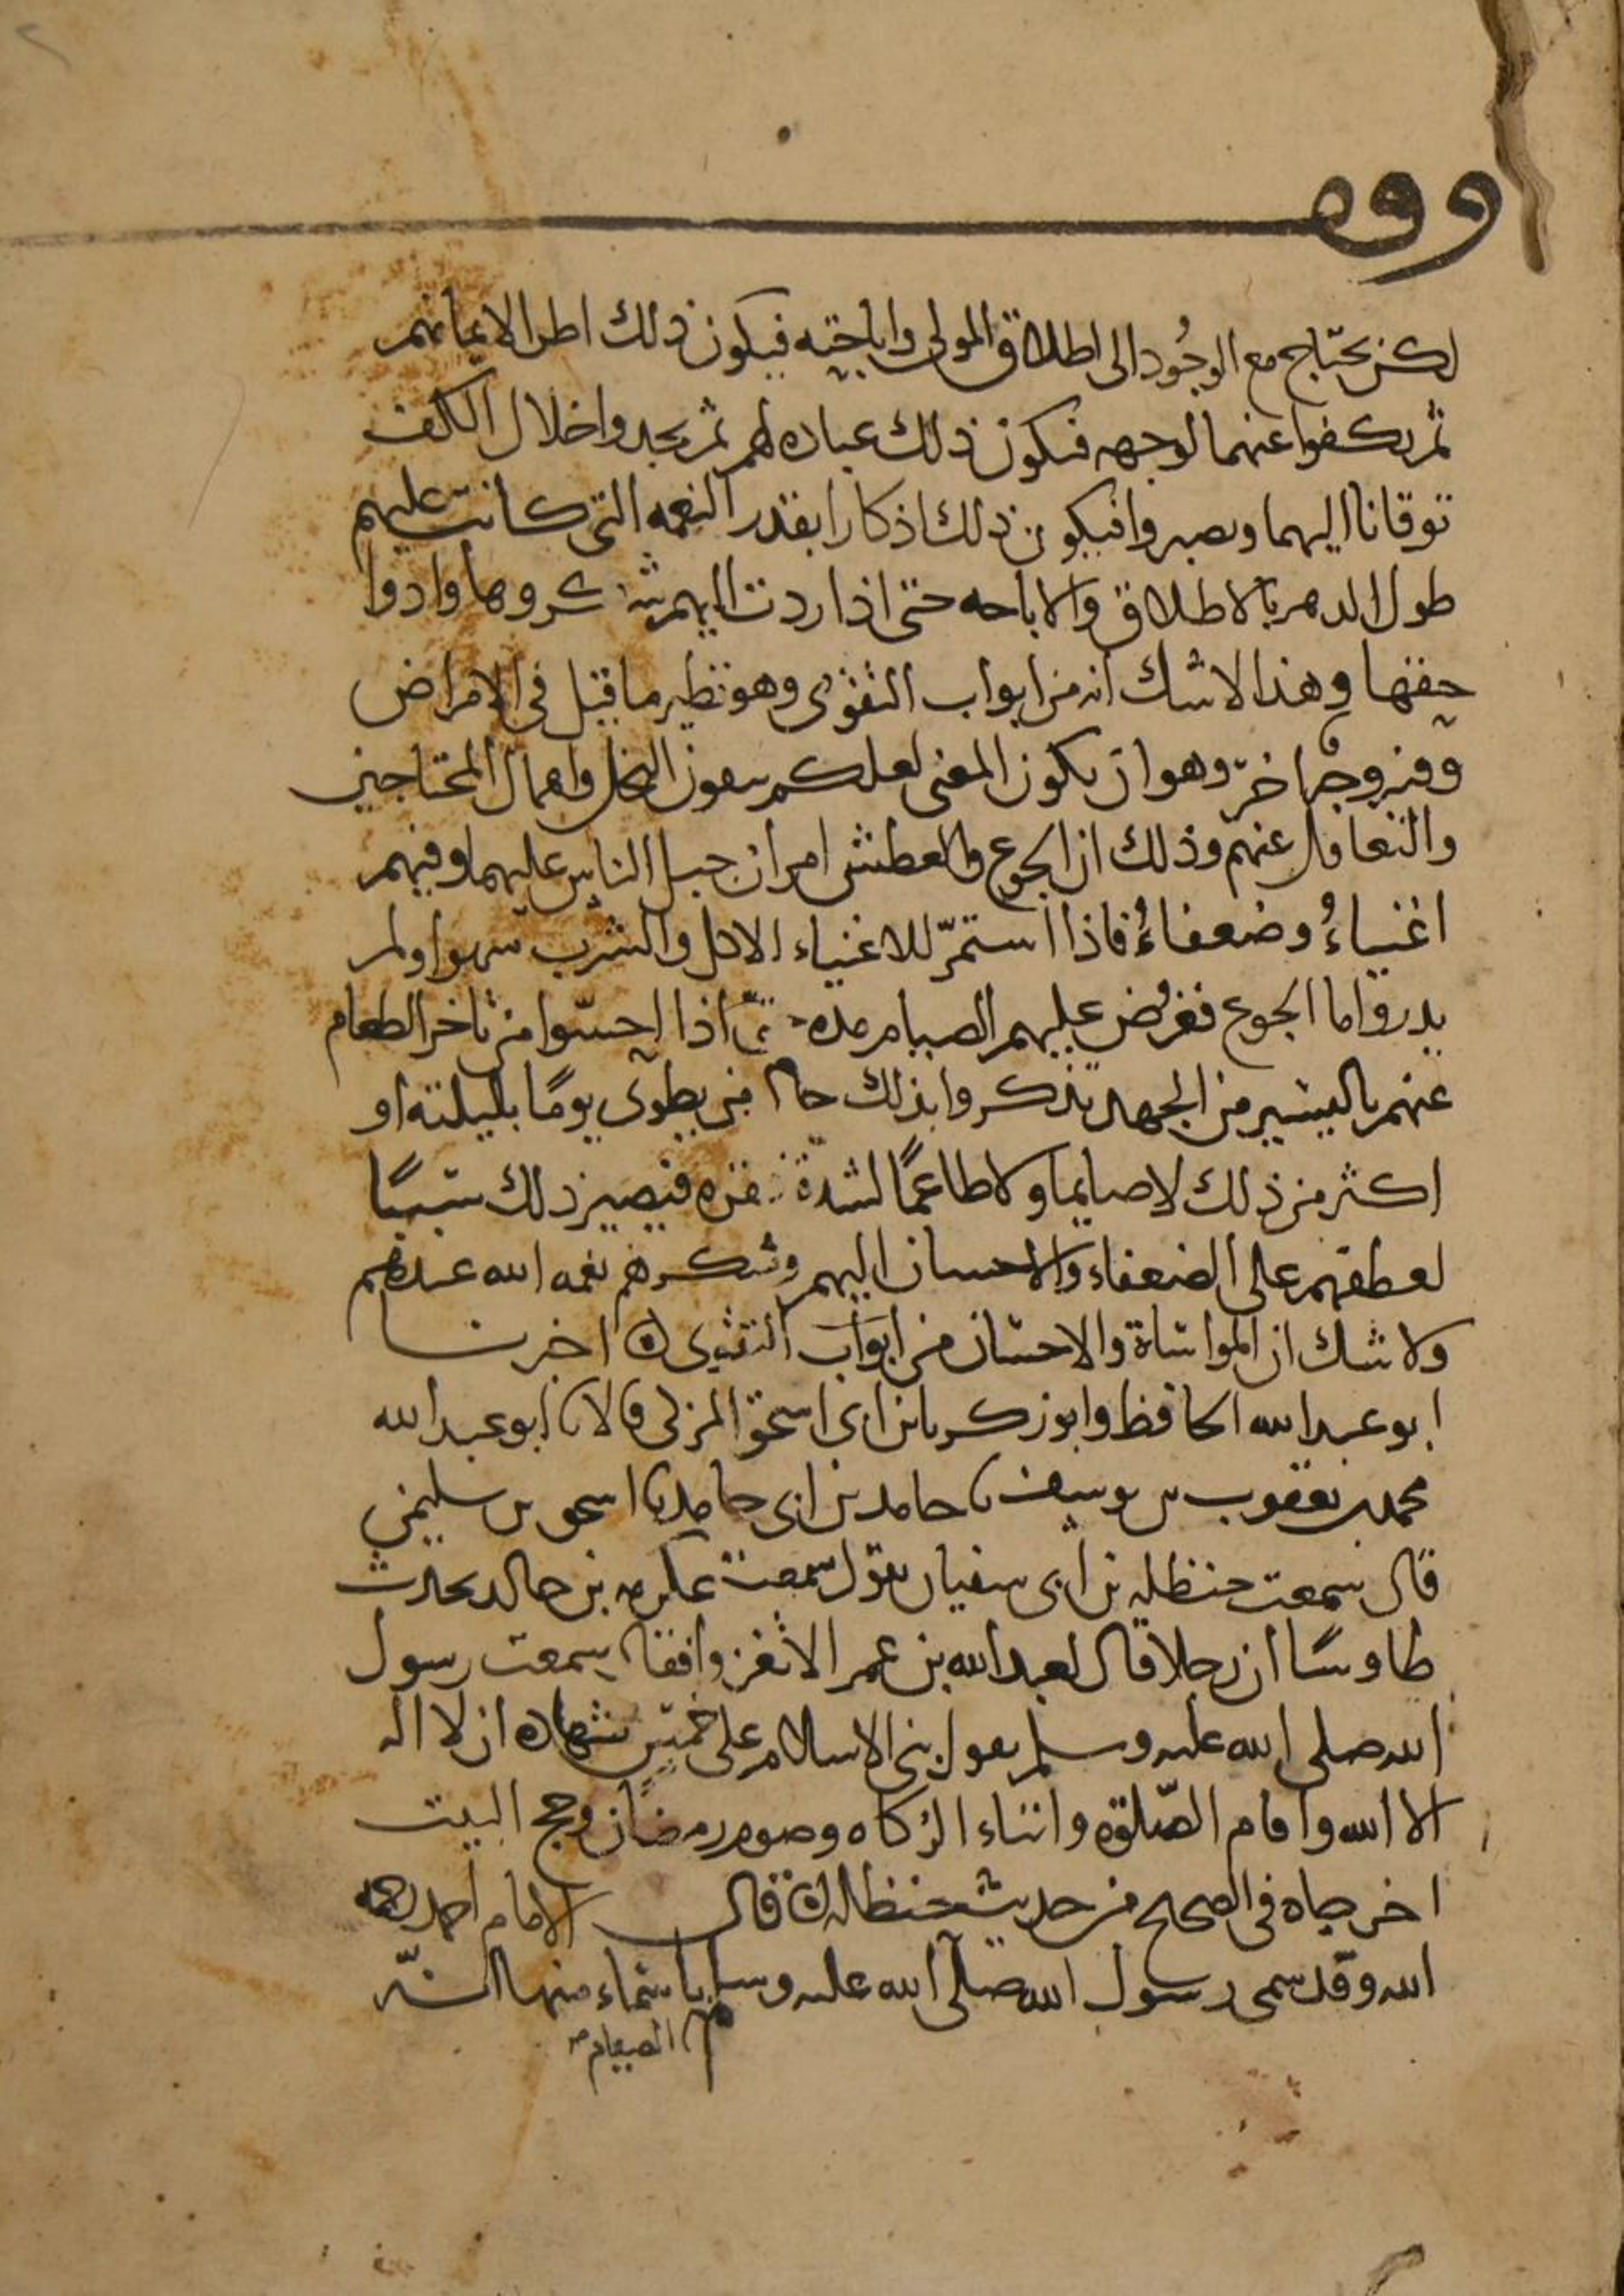 وقف
لكن يحتاج مع الوجود الى اطلاق المولى واباحته فيكون ذلك اطرا لايمانهم
ثم يكفوا عنهما لوجهه فيكون ذلك عبادة لهم ثم يجدوا خلال الكف
توقانا اليهما ويصبروا فيكون ذلك اذكارا بقدر النعمه التي كانت عليهم
طول الدهر بالاطلاق والاباحه حتى اذا ردت اليهم شكروها وادوا
حقها وهذا لا شك انه من ابواب التقوى وهو نظير ما قيل في الامراض
وفيه وجه اخر وهو ان يكون المعنى لعلكم تتقون البخل واهمال المحتاجين
والتغافل عنهم وذلك ان الجوع والعطش امران جبل الناس عليهما وفيهم
اغنياءُ وضعفاءُ فاذا استمرّ للاغنياء الاكل والشرب سهوا ولم
يدروا ما الجوع ففرض عليهم الصيام مده حتى اذا احسّوا من تاخر الطعام
عنهم باليسير من الجهد تذكروا بذلك حال من يطوى يومًا بليلته او
اكثر من ذلك لا صايما ولا طاعمًا لشدة فقره فيصير ذلك سببًا
لعطفهم على الضعفاء والاحسان اليهم وشكرهم نعمه الله عندهم
ولا شك ان المواساة والاحسان من ابواب التقوى ۞ اخبرنا
ابو عبد الله الحافظ وابو زكريا بن ابي اسحق المزكي قالا نا ابو عبد الله
محمد بن يعقوب بن يوسف نا حامد بن ابي حامد نا اسحق بن سليمن
قال سمعت حنظله بن ابي سفيان يقول سمعت عكرمه بن خالد يحدث
طاوسًا ان رجلا قال لعبد الله بن عمر الا تغزوا فقال سمعت رسول
الله صلى الله عليه وسلم يقول بني الاسلام على خمس شهاده ان لا اله
الا الله واقام الصّلوة وايتاء الزكاه وصوم رمضان وحج البيت
اخرجاه في الصحيح من حديث حنظله ۞ قال الامام احمد رحمه
الله وقد سمى رسول الله صلى الله عليه وسلم باسماء منها
الصيام